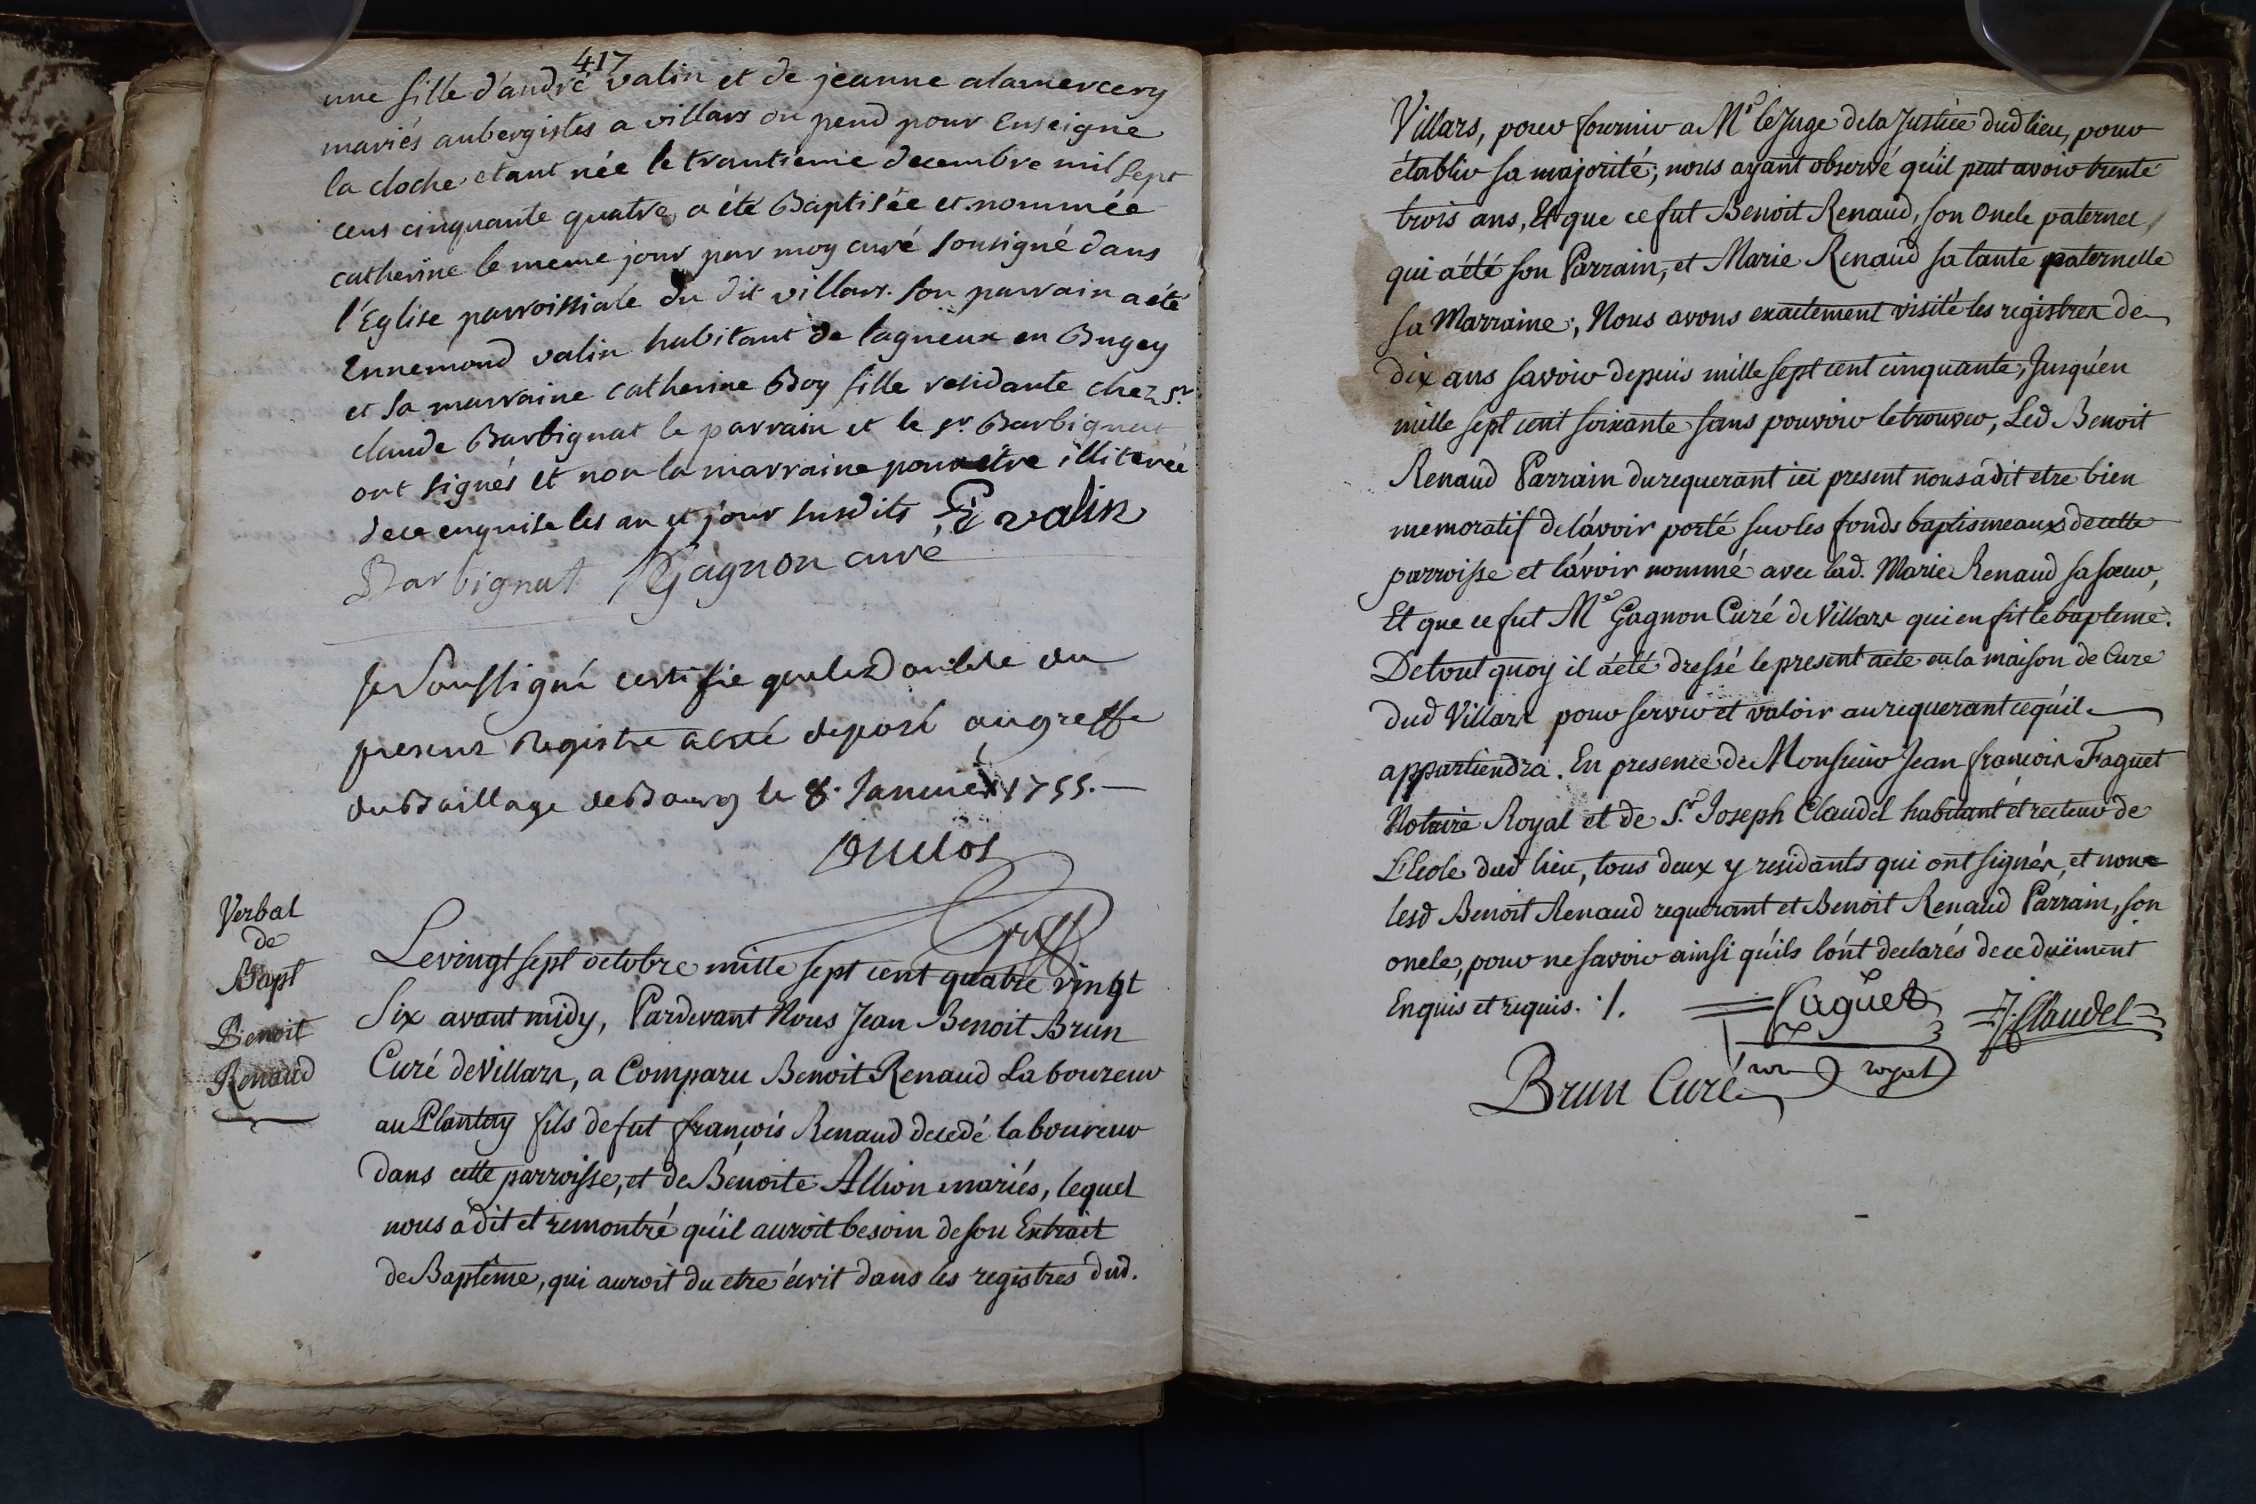 417
une fille d'andré valin et de jeanne alamercery
mariés aubergistes a villars ou pend pour Enseigne
la cloche etant née le trantieme decembre mil sept
cens cinquante quatre a été Baptisée et nommée
catherine le meme jour par moy curé sousigné dans
l'Eglise parroissiale du dit villars. son parrain a été
Ennemond valin habitant de lagneux en Bugey
et sa marraine catherine Boy fille residante chez Sr.
claude Barbignat le parrain et le sr. Barbignat
ont signés et non la marraine pour être illiterée
de ce enquise les an et jour susdits E valin
Barbignat Gagnon curé
Je soussigné certifie que le double du
present Registre a esté deposé au greffe
du Baillage de Bourg le 8. Janvier 1755.
Duclos
greff
Verbal
de
Bapt
Benoit
Renaud
Le vingt sept octobre mille sept cent quatre vingt
Six avant midy, Pardevant Nous Jean Benoit Brun
Curé de Villars, a Comparu Benoit Renaud Laboureur
au Plantay fils de fut françois Renaud decedé laboureur
dans cette parroisse, et de Benoite Allion mariés, lequel
nous a dit et remontré qu'il auroit besoin de son Extrait
de Baptême, qui auroit du etre écrit dans les registres dud.
Villars, pour fournir a Mr le Juge de la Justice dud lieu, pour
établir sa majorité; nous ayant observé qu'il peut avoir trente
trois ans, Et que ce fut Benoit Renaud, son Oncle paternel
qui a été son Parrain, et Marie Renaud sa tante paternelle
sa Marraine; Nous avons exactement visité les registres de
dix ans savoir depuis mille sept cent cinquante, Jusqu'en
mille sept cent soixante sans pouvoir le trouver, Led Benoit
Renaud Parrain du requerant ici present nous a dit etre bien
memoratif de l'avoir porté sur les fonds baptismeaux de cette
parroisse et l'avoir nommé avec lad. Marie Renaud sa sœur,
Et que ce fut Me Gagnon Curé de Villars qui en fit le bapteme.
De tout quoy il a été dressé le present acte en la maison de Cure
dud Villars pour servir et valoir au requerant ce qu'il
appartiendra. En presence de Monsieur Jean françois Faguet
Notaire Royal et de Sr. Joseph Claudel habitant et recteur de
L'Ecole dud lieu, tous deux y residants qui ont signés, et non
lesd Benoit Renaud requerant et Benoit Renaud Parrain, son
oncle, pour ne savoir ainsi qu'ils l'ont declarés de ce duëment
Enquis et requis. ./.
Faguet
J. Claudel
nore royal
Brun Curé